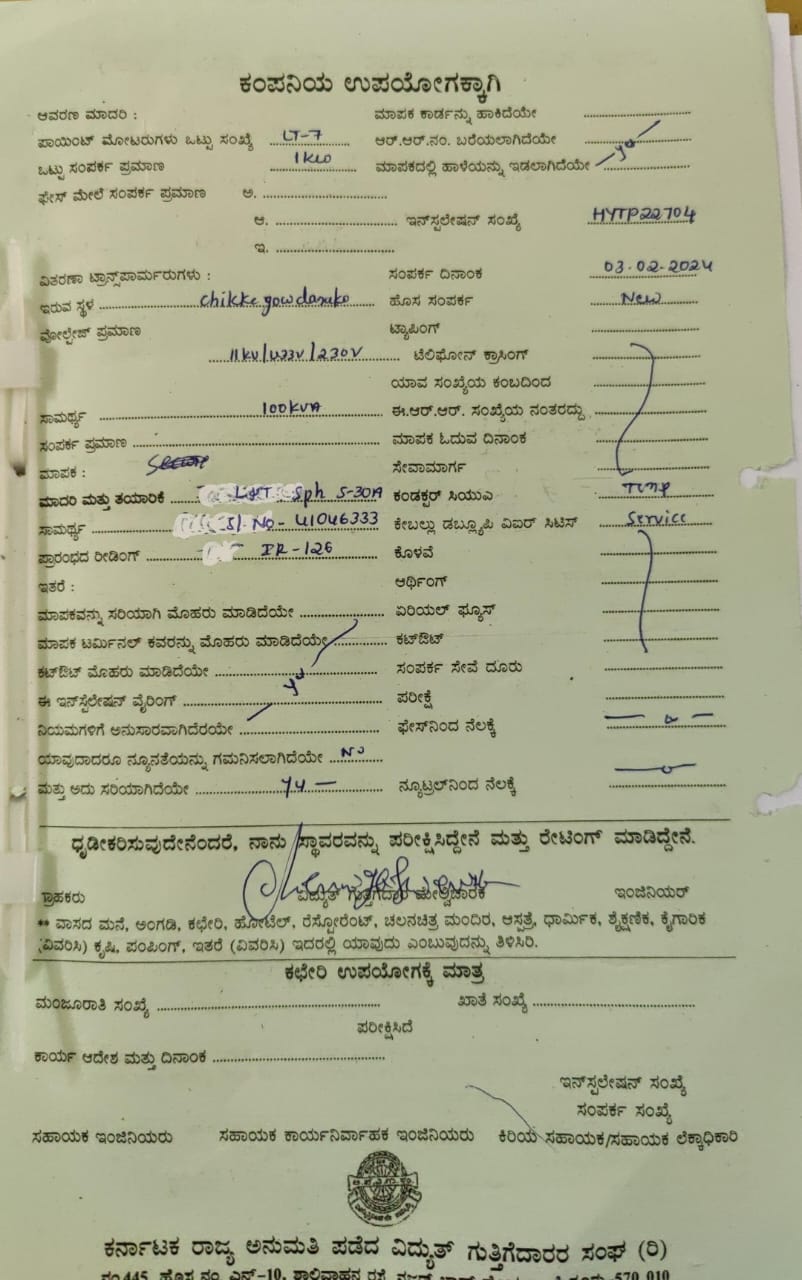 ಕಂಪನಿಯ ಉಪಯೋಗಕ್ಕಾಗಿ
ಆವರಣ ಮಾದರಿ : ಮಾಪಕ ಕಾರ್ಡನ್ನು ಹಾಕಿದೆಯೇ
ಪಾಯಿಂಟ್ ಮೋಟರುಗಳು ಒಟ್ಟು ಸಂಖ್ಯೆ LT-7 ಆರ್.ಆರ್.ನಂ. ಬರೆಯಲಾಗಿದೆಯೇ
ಒಟ್ಟು ಸಂಪರ್ಕ ಪ್ರಮಾಣ 1KW ಮಾಪಕದಲ್ಲಿ ಹಾಳೆಯನ್ನು ಇಡಲಾಗಿದೆಯೇ
ಫೇಸ್ ಮೇಲೆ ಸಂಪರ್ಕ ಪ್ರಮಾಣ ಅ.
ಆ. ಇನ್‌ಸ್ಟಲೇಷನ್ ಸಂಖ್ಯೆ HYTP22704
ಇ.
ವಿತರಣಾ ಟ್ರಾನ್ಸ್‌ಪಾರ್ಮರುಗಳು : ಸಂಪರ್ಕ ದಿನಾಂಕ 03-02-2024
ಇರುವ ಸ್ಥಳ ಹೊಸ ಸಂಪರ್ಕ New
ವೋಲ್ಟೇಜ್ ಪ್ರಮಾಣ ಟ್ಯಾಪಿಂಗ್
11KV/433V/230V ಟೆಲಿಫೋನ್ ಕ್ರಾಸಿಂಗ್
ಯಾವ ಸಂಖ್ಯೆಯ ಕಂಬದಿಂದ
ಸಾಮರ್ಥ್ಯ 100KVA ಈ.ಆರ್.ಆರ್. ಸಂಖ್ಯೆಯ ನಂತರದ್ದು
ಸಂಪರ್ಕ ಪ್ರಮಾಣ ಮಾಪಕ ಓದುವ ದಿನಾಂಕ
ಮಾಪಕ : ಸೇವಾಮಾರ್ಗ
ಮಾದರಿ ಮತ್ತು ತಯಾರಿಕೆ L&T Sph 5-30A ಕಂಡಕ್ಟರ್ ಸಿಯುಎ Temp
ಸಾಮರ್ಥ್ಯ Sl No- 41046333 ಕೇಬಲ್ಲು ಡಬ್ಲ್ಯೂಪಿ ವಿಐರ್ ಸಿಟಿಸ್ Service
ಪ್ರಾರಂಭದ ರೀಡಿಂಗ್ IR-126 ಕೊಳವೆ
ಇತರೆ : ಆರ್ಥಿಂಗ್
ಮಾಪಕವನ್ನು ಸರಿಯಾಗಿ ಮೊಹರು ಮಾಡಿದೆಯೇ ಏರಿಯಲ್ ಫ್ಯೂಸ್
ಮಾಪಕ ಟರ್ಮಿನಲ್ ಕವರನ್ನು ಮೊಹರು ಮಾಡಿದೆಯೇ ಕಟ್‌ಔಟ್
ಕಟ್‌ಔಟ್ ಮೊಹರು ಮಾಡಿದೆಯೇ ಸಂಪರ್ಕ ಸೇವೆ ದೂರು
ಈ ಇನ್‌ಸ್ಟೆಲೇಷನ್ ವೈರಿಂಗ್ ಪರೀಕ್ಷೆ
ನಿಯಮಗಳಿಗೆ ಅನುಸಾರವಾಗಿದೆರಯೇ ಫೇಸ್‌ನಿಂದ ನೆಲಕ್ಕೆ
ಯಾವುದಾದರೂ ನ್ಯೂನತೆಯನ್ನು ಗಮನಿಸಲಾಗಿದೆಯೇ No
ಮತ್ತು ಅದು ಸರಿಯಾಗಿದೆಯೇ ನ್ಯೂಟ್ರಲ್‌ನಿಂದ ನೆಲಕ್ಕೆ
ಧೃಡೀಕರಿಸುವುದೇನೆಂದರೆ, ನಾನು ಸ್ಥಾವರವನ್ನು ಪರೀಕ್ಷಿಸಿದ್ದೇನೆ ಮತ್ತು ರೇಟಿಂಗ್ ಮಾಡಿದ್ದೇನೆ.
ಗ್ರಾಹಕರು ವಿದ್ಯುತ್ ಗುತ್ತಿಗೆದಾರ ಮೇಲ್ವಿಚಾರಕ ಇಂಜಿನಿಯರ್
** ವಾಸದ ಮನೆ, ಅಂಗಡಿ, ಕಛೇರಿ, ಹೋಟೆಲ್, ರೆಸ್ಟೋರೆಂಟ್, ಚಲನಚಿತ್ರ ಮಂದಿರ, ಆಸ್ಪತ್ರೆ, ಧಾರ್ಮಿಕ, ಶೈಕ್ಷಣಿಕ, ಕೈಗಾರಿಕ
(ವಿವರಿಸಿ) ಕೃಷಿ, ಪಂಪಿಂಗ್, ಇತರೆ (ವಿವರಿಸಿ) ಇದರಲ್ಲಿ ಯಾವುದು ಎಂಬುವುದನ್ನು ತಿಳಿಸಿರಿ.
ಕಛೇರಿ ಉಪಯೋಗಕ್ಕೆ ಮಾತ್ರ
ಮಂಜೂರಾತಿ ಸಂಖ್ಯೆ ಖಾತೆ ಸಂಖ್ಯೆ
ಪರೀಕ್ಷಿಸಿದೆ
ಕಾರ್ಯ ಆದೇಶ ಮತ್ತು ದಿನಾಂಕ
ಇನ್‌ಸ್ಟಲೇಷನ್ ಸಂಖ್ಯೆ
ಸಂಪರ್ಕ ಸಂಖ್ಯೆ
ಸಹಾಯಕ ಇಂಜಿನಿಯರು ಸಹಾಯಕ ಕಾರ್ಯನಿರ್ವಾಹಕ ಇಂಜಿನಿಯರು ಕಿರಿಯ ಸಹಾಯಕ/ಸಹಾಯಕ ಲೆಕ್ಕಾಧಿಕಾರಿ
ಕರ್ನಾಟಕ ರಾಜ್ಯ ಅನುಮತಿ ಪಡೆದ ವಿದ್ಯುತ್ ಗುತ್ತಿಗೆದಾರರ ಸಂಘ (ರಿ)